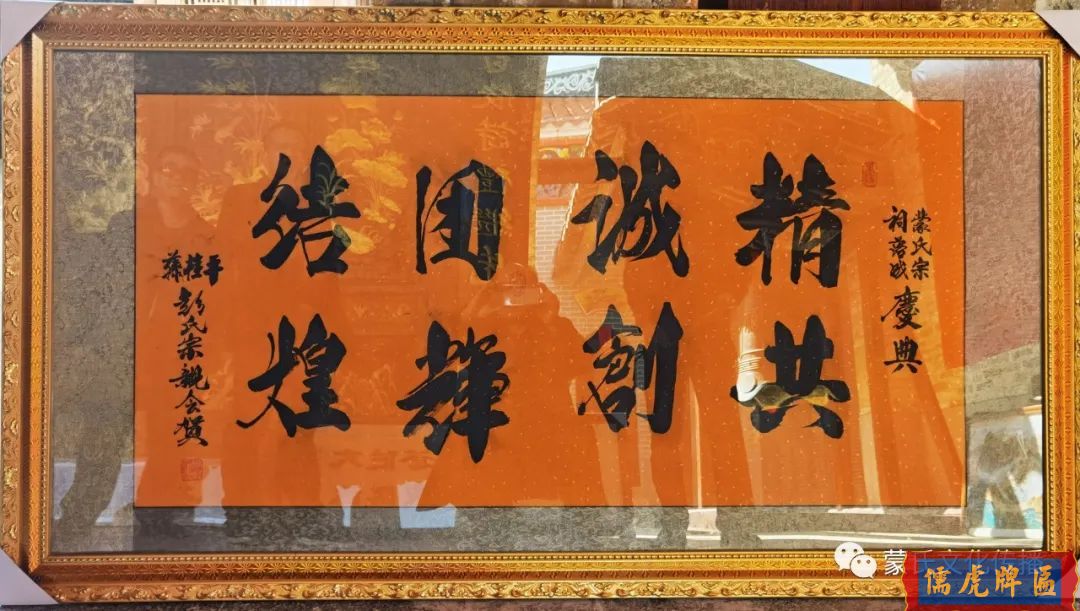 蒙氏宗
祠落成
慶典
精诚团结
共創輝煌
平桂藤
彭氏宗親会賀
蒙氏文化传播
儒虎牌區